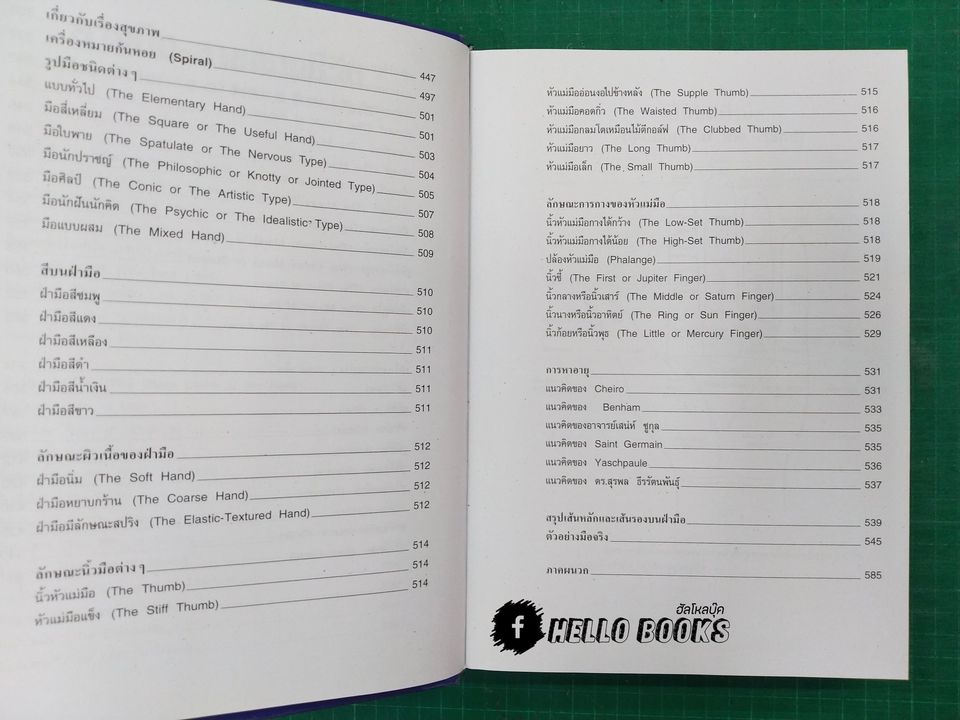 เกี่ยวกับเรื่องสุขภาพ 447
เครื่องหมายก้นหอย (Spiral) 497
รูปมือชนิดต่าง ๆ 501
แบบทั่วไป (The Elementary Hand) 501
มือสี่เหลี่ยม (The Square or The Useful Hand) 503
มือใบพาย (The Spatulate or The Nervous Type) 504
มือนักปราชญ์ (The Philosophic or Knotty or Jointed Type) 505
มือศิลป์ (The Conic or The Artistic Type) 507
มือนักฝันนักคิด (The Psychic or The Idealistic Type) 508
มือแบบผสม (The Mixed Hand) 509
สีบนฝ่ามือ 510
ฝ่ามือสีชมพู 510
ฝ่ามือสีแดง 510
ฝ่ามือสีเหลือง 511
ฝ่ามือสีดำ 511
ฝ่ามือสีน้ำเงิน 511
ฝ่ามือสีขาว 511
ลักษณะผิวเนื้อของฝ่ามือ 512
ฝ่ามือนิ่ม (The Soft Hand) 512
ฝ่ามือหยาบกร้าน (The Coarse Hand) 512
ฝ่ามือมีลักษณะสปริง (The Elastic-Textured Hand) 512
ลักษณะนิ้วมือต่าง ๆ 514
นิ้วหัวแม่มือ (The Thumb) 514
หัวแม่มือแข็ง (The Stiff Thumb) 514
หัวแม่มืออ่อนงอไปข้างหลัง (The Supple Thumb) 515
หัวแม่มือคอดกิ่ว (The Waisted Thumb) 516
หัวแม่มือกลมโตเหมือนไม้ตีกอล์ฟ (The Clubbed Thumb) 516
หัวแม่มือยาว (The Long Thumb) 517
หัวแม่มือเล็ก (The Small Thumb) 517
ลักษณะการกางของหัวแม่มือ 518
นิ้วหัวแม่มือกางได้กว้าง (The Low-Set Thumb) 518
นิ้วหัวแม่มือกางได้น้อย (The High-Set Thumb) 518
ปล้องหัวแม่มือ (Phalange) 519
นิ้วชี้ (The First or Jupiter Finger) 521
นิ้วกลางหรือนิ้วเสาร์ (The Middle or Saturn Finger) 524
นิ้วนางหรือนิ้วอาทิตย์ (The Ring or Sun Finger) 526
นิ้วก้อยหรือนิ้วพุธ (The Little or Mercury Finger) 529
การหาอายุ 531
แนวคิดของ Cheiro 531
แนวคิดของ Benham 533
แนวคิดของอาจารย์เสน่ห์ ชูกุล 535
แนวคิดของ Saint Germain 535
แนวคิดของ Yaschpaule 536
แนวคิดของ ดร.สุรพล ธีรรัตนพันธุ์ 537
สรุปเส้นหลักและเส้นรองบนฝ่ามือ 539
ตัวอย่างมือจริง 545
ภาคผนวก 585
ฮัลโหลบุ๊ค
f HELLO BOOKS